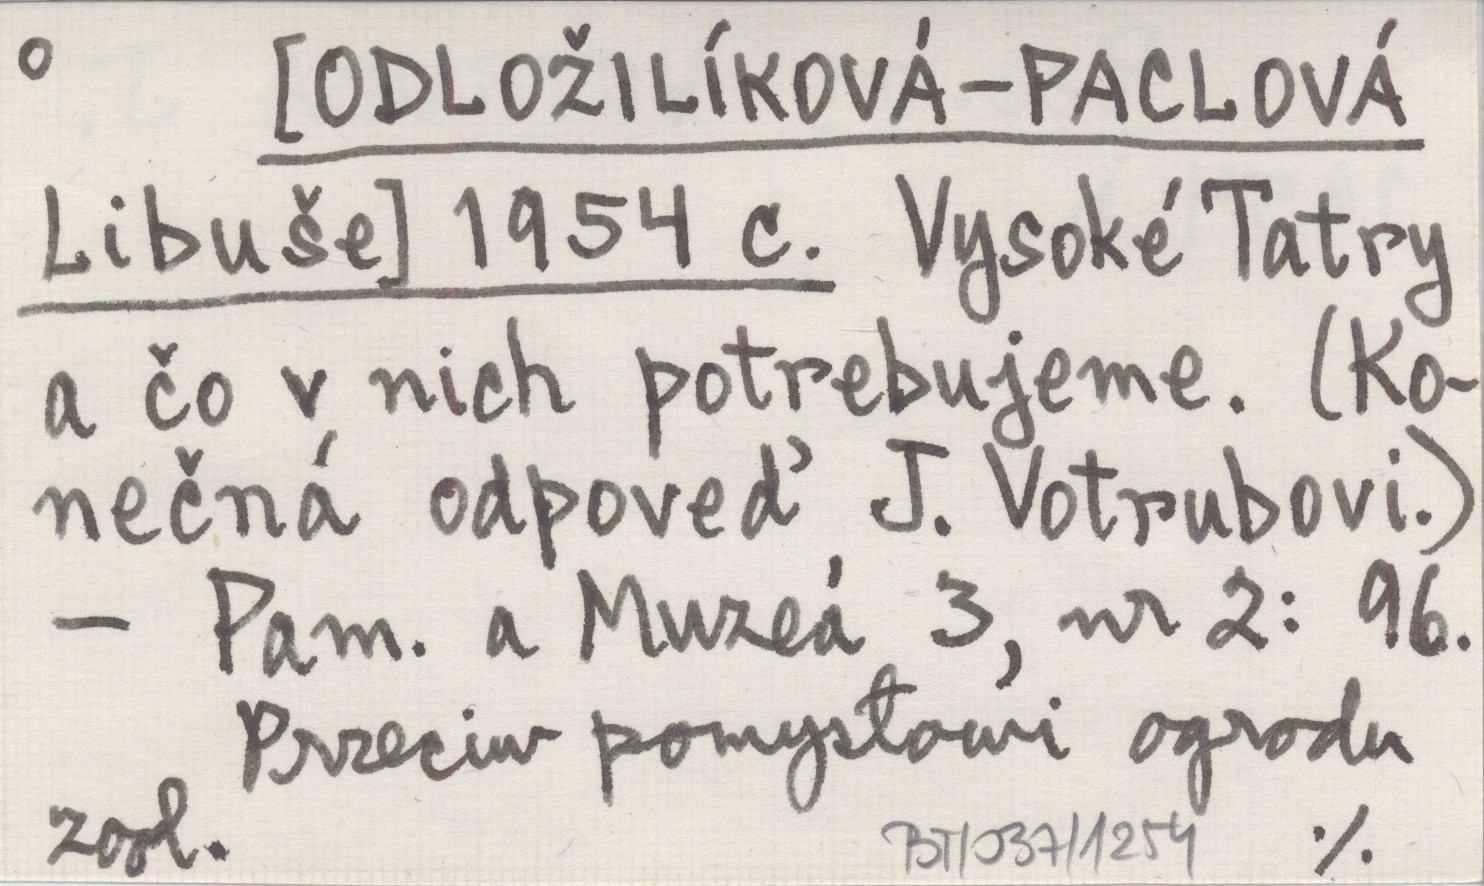 o [ODLOŽILÍKOVÁ-PACLOVÁ
Libuše] 1954 c. Vysoké Tatry
a čo v nich potrebujeme. (Ko-
nečná odpoveď J. Votrubovi.)
— Pam. a Muzeá 3, nr 2: 96.
Przeciw pomysłowi ogrodu
zool.
BT/037/1254 ·/.